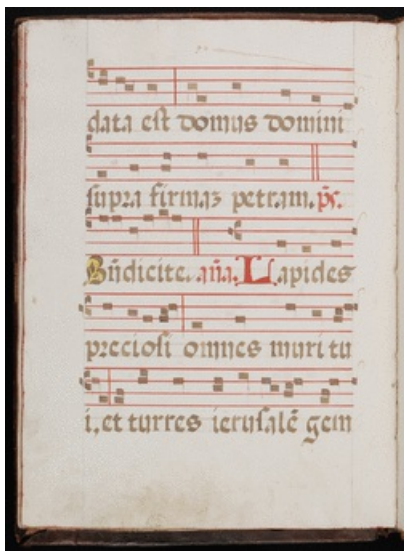 data est domus domini
supra firmaz petram. ps.
Bñdicite. aña. Lapides
preciosi omnes muri tu
i, et turres ierusalē gem